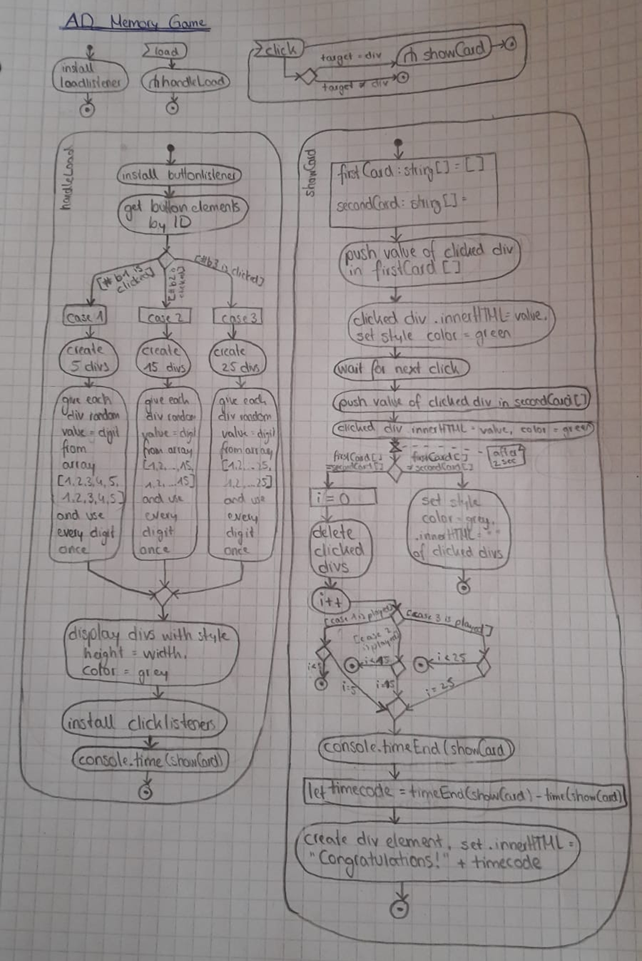 AD Memory Game
install
loadlistener
load
handleLoad
click
target = div
showCard
target ≠ div
handleLoad
install buttonlistener
get button elements
by ID
[#b1 is
clicked]
[#b2 is
clicked]
[#b3 is clicked]
case 1
case 2
case 3
create
5 divs
create
15 divs
create
25 divs
give each
div random
value = digit
from
array
[1,2,3,4,5,
1,2,3,4,5]
and use
every digit
once
give each
div random
value = digit
from array
[1,2,...,15,
1,2,...,15]
and use
every
digit
once
give each
div random
value = digit
from array
[1,2,...,25,
1,2,...,25]
and use
every
digit
once
display divs with style
height = width,
color = grey
install clicklisteners
console.time(showCard)
showCard
firstCard : string[] = []
secondCard : string[]
push value of clicked div
in firstCard []
clicked div .innerHTML = value,
set style color = green
wait for next click
push value of clicked div in secondCard[]
clicked div innerHTML = value, color = green
firstCard[]
= secondCard[]
firstCard[]
≠ secondCard[]
after
2 sec
i = 0
set style
color = grey,
.innerHTML = " "
of clicked divs
delete
clicked
divs
i++
[case 1 is played]
[case 2
is played]
[case 3 is played]
i<5
i<15
i<25
i=5
i=15
i = 25
console.timeEnd(showCard)
let timecode = timeEnd(showCard) - time(showCard)
create div element, set .innerHTML =
"Congratulations!" + timecode